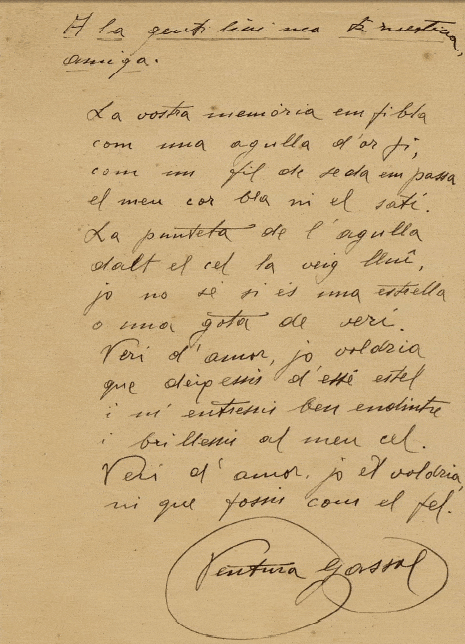 A la gentilíssima Ernestina,
amiga.
La vostra memòria em fibla
com una agulla d'or fi,
com un fil de seda em passa
el meu cor bla ni el satí.
La punteta de l'agulla
dalt el cel la veig lluí,
jo no sé si és una estrella
o una gota de verí.
Verí d'amor, jo voldria
que deixessis d'essé estel
i m'entressis ben endintre
i brillessis al meu cel.
Verí d'amor, jo et voldria,
ni que fossis com el fel.
Ventura Gassol